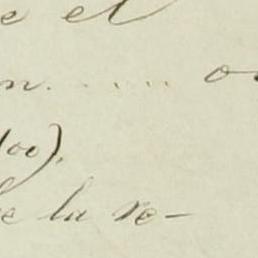 e et
n. .... o
100).
e la re-